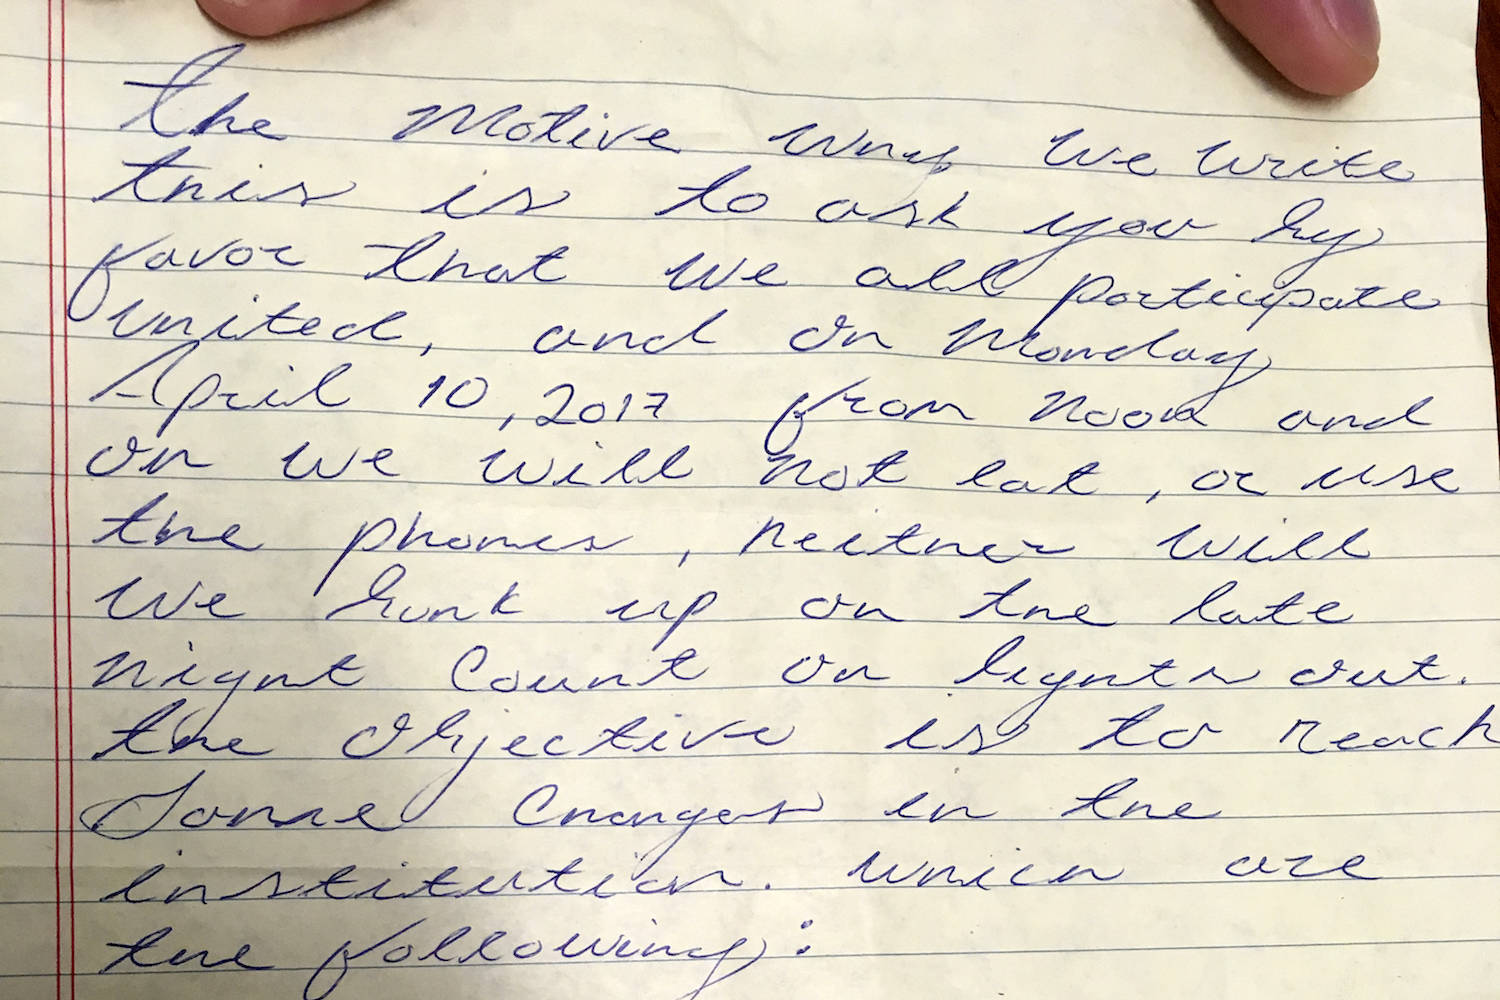 the Motive why we write
this is to ask you by
favor that we all participate
united, and on Monday
April 10, 2017 from Noon and
on we will not eat, or use
the phones, neither will
we bunk up on the late
night count on lights out.
the objective is to reach
Some changes in the
institution. which are
the following: